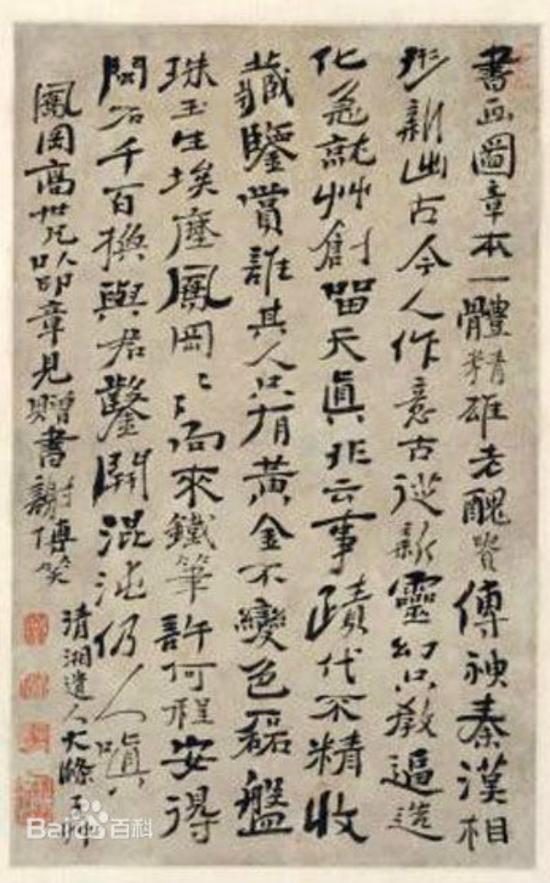 書画圖章本一體精雄老醜貴傳神秦漢相
形新出古今人作意古從新靈幻只教逼造
化急就艸創留天真非云事蹟代不精收
藏鑒賞誰其人只有黃金不變色磊盤
珠玉生埃塵鳳岡〻〻向來鐵筆許何程安得
閒石千百換與君鑿開混沌仍人嗔
鳳岡高世兄以印章見贈書謝博笑
清湘遺人大滌子艸
Bai百科